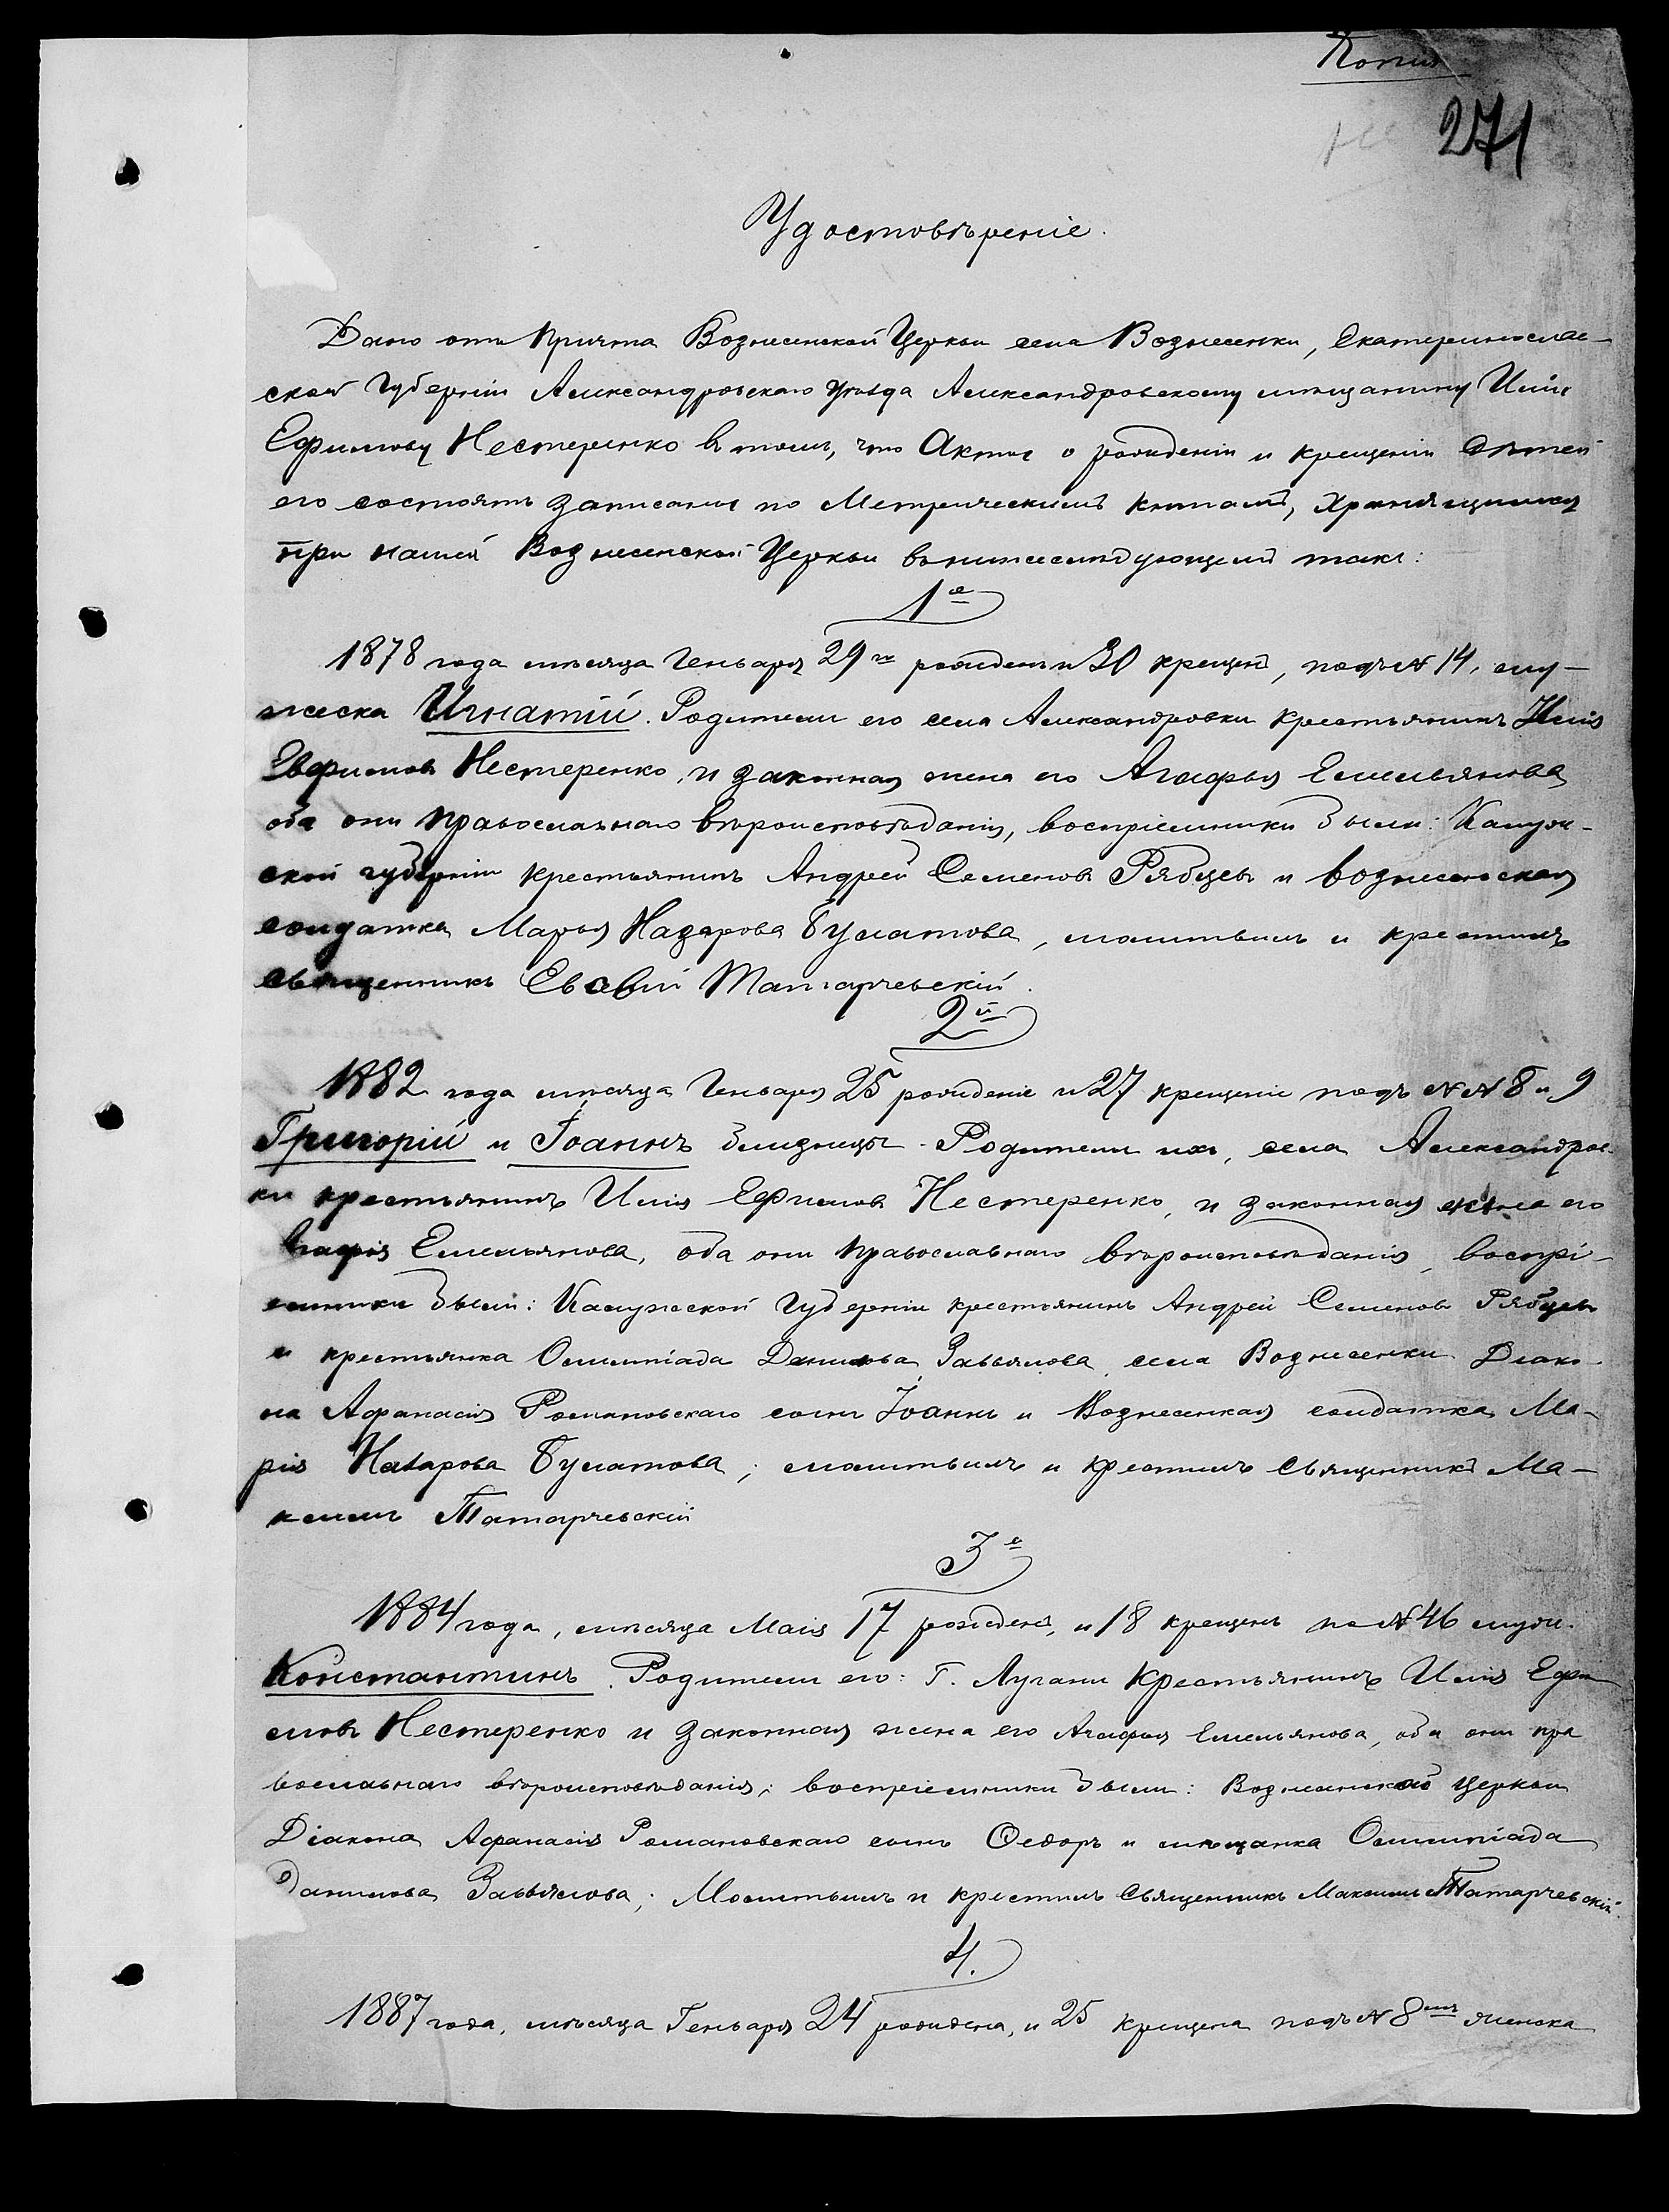 Копия
271
Удостовѣреніе.
Дано отъ Причта Вознесенской Церкви села Вознесенки, Екатеринослав-
ской Губерніи Александровскаго Уѣзда Александровскому мѣщанину Иліи
Ефимову Нестеренко въ томъ, что Акты о рожденіи и крещеніи дѣтей
его состоятъ записаны по Метрическимъ книгамъ, хранящимся
при нашей Вознесенской Церкви въ нижеслѣдующемъ такъ:
1е
1878 года мѣсяца Генваря 29го рожденъ и 30 крещенъ, подъ № 14, му-
жеска Игнатій. Родители его села Александровки крестьянинъ Илія
Евфимовъ Нестеренко, и законная жена его Агафья Емельянова
оба они православнаго вѣроисповѣданія, воспріемники были: Калуж-
ской губерніи крестьянинъ Андрей Семеновъ Рябцевъ и вознесенская
солдатка Марья Назарова Булатова, молитвилъ и крестилъ
священникъ Евсевій Татарчевскій.
2й
1882 года мѣсяца Генваря 25 рождены и 27 крещены подъ №№ 8 и 9
Григорій и Іоаннъ близнецы. Родители ихъ, села Александров-
ки крестьянинъ Илія Ефимовъ Нестеренко, и законная жена его
Агафія Емельянова, оба они православнаго вѣроисповѣданія, воспрі-
емники были: Калужской Губерніи крестьянинъ Андрей Семеновъ Рябцевъ
и крестьянка Олимпіада Данилова Завьялова, села Вознесенки Діако-
на Афанасія Романовскаго сынъ Іоаннъ и Вознесенкая солдатка Ма-
рія Назарова Булатова; молитвилъ и крестилъ Священникъ Ма-
ксимъ Татарчевскій
3е
1884 года, мѣсяца Маія 17 рожденъ, и 18 крещенъ по № 46 муж.
Константинъ. Родители его: Г. Лугани Крестьянинъ Илія Ефи
мовъ Нестеренко и законная жена его Агафья Емельянова, оба они пра
вославнаго вѣроисповѣданія; воспріемники были: Вознесенской Церкви
Діакона Афанасія Романовскаго сынъ Ѳедоръ и мѣщанка Олимпіада
Данилова Завьялова; Молитвилъ и крестилъ Священникъ Максимъ Татарчевскій.
4.
1887 года, мѣсяца Генваря 24 рождена, и 25 крещена подъ № 8мъ женска